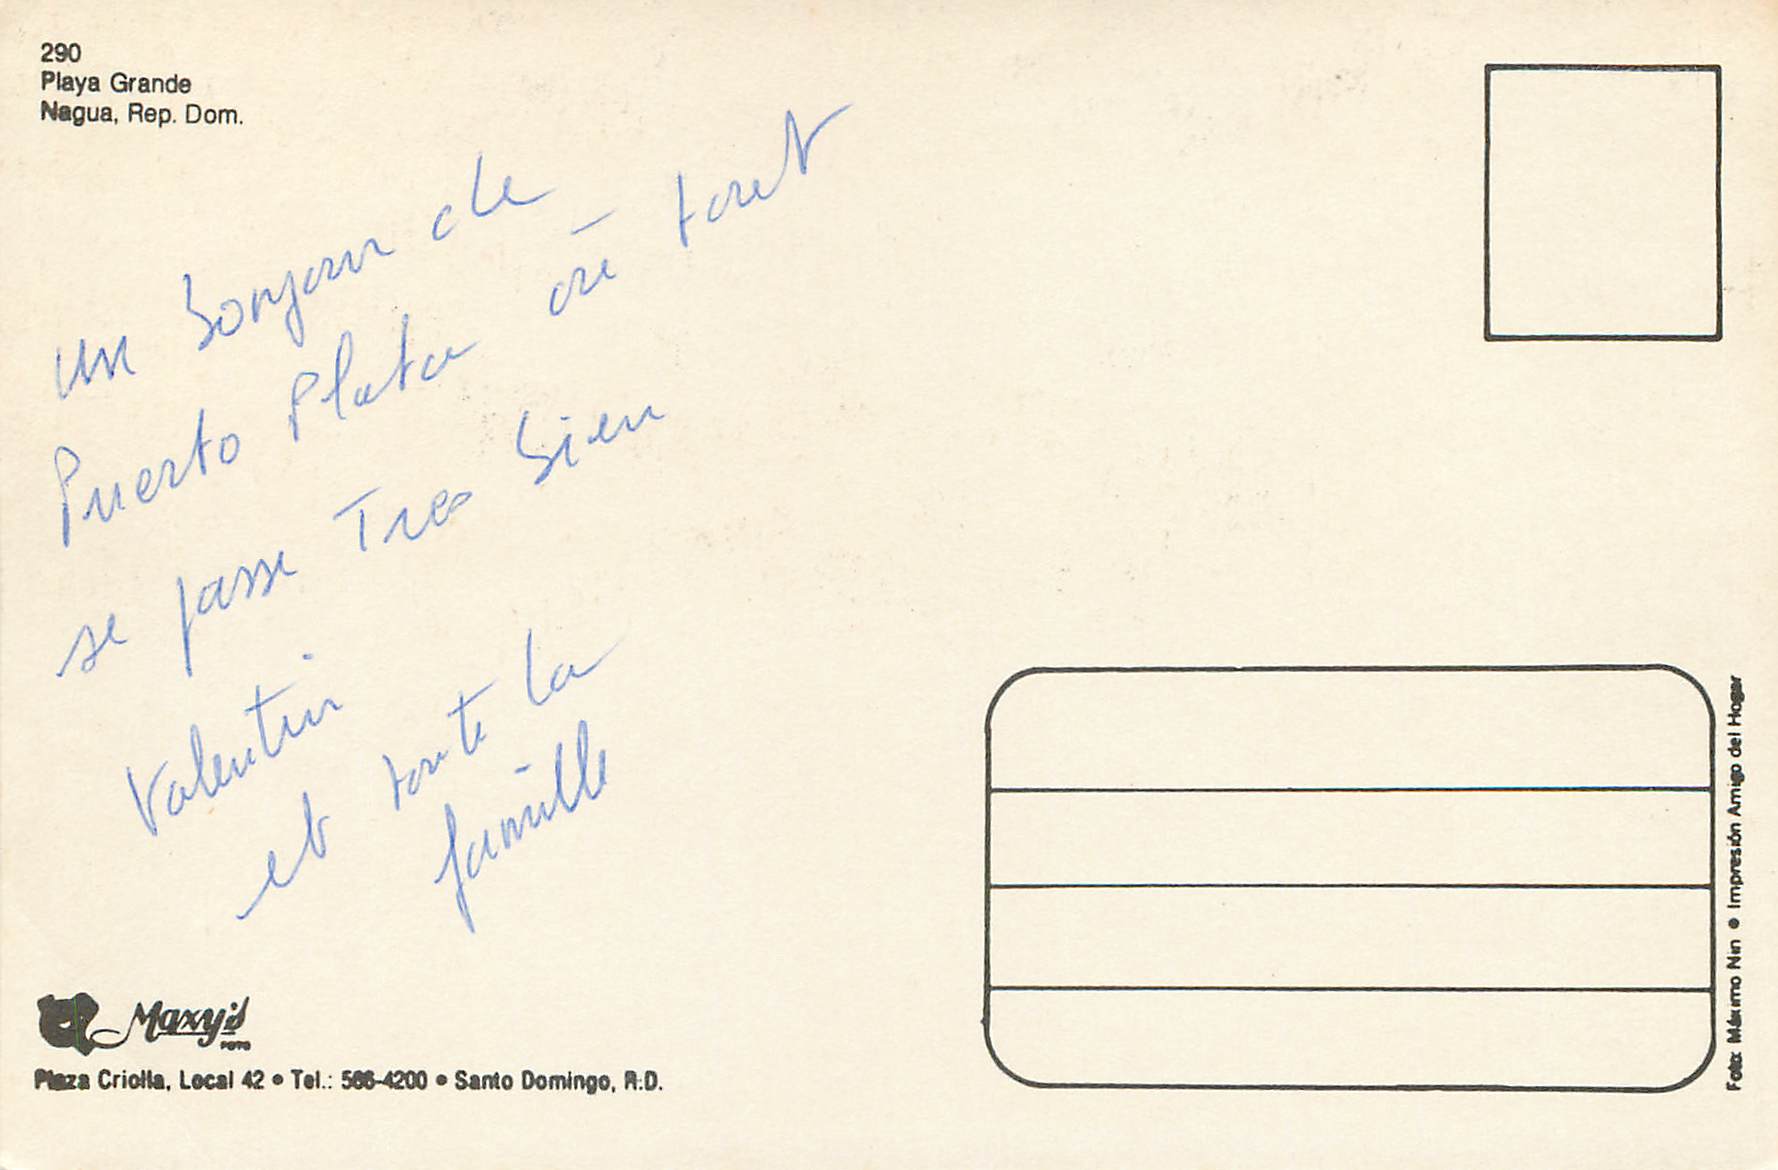 290
Playa Grande
Nagua, Rep. Dom.
un bonjour de
Puerto Plata où tout
se passe Tres bien
Valentin
et toute la
famille
Maxy's
FOTO
Plaza Criolla, Local 42 • Tel.: 566-4200 • Santo Domingo, R.D.
Foto: Máximo Nin • Impresión Amigo del Hogar